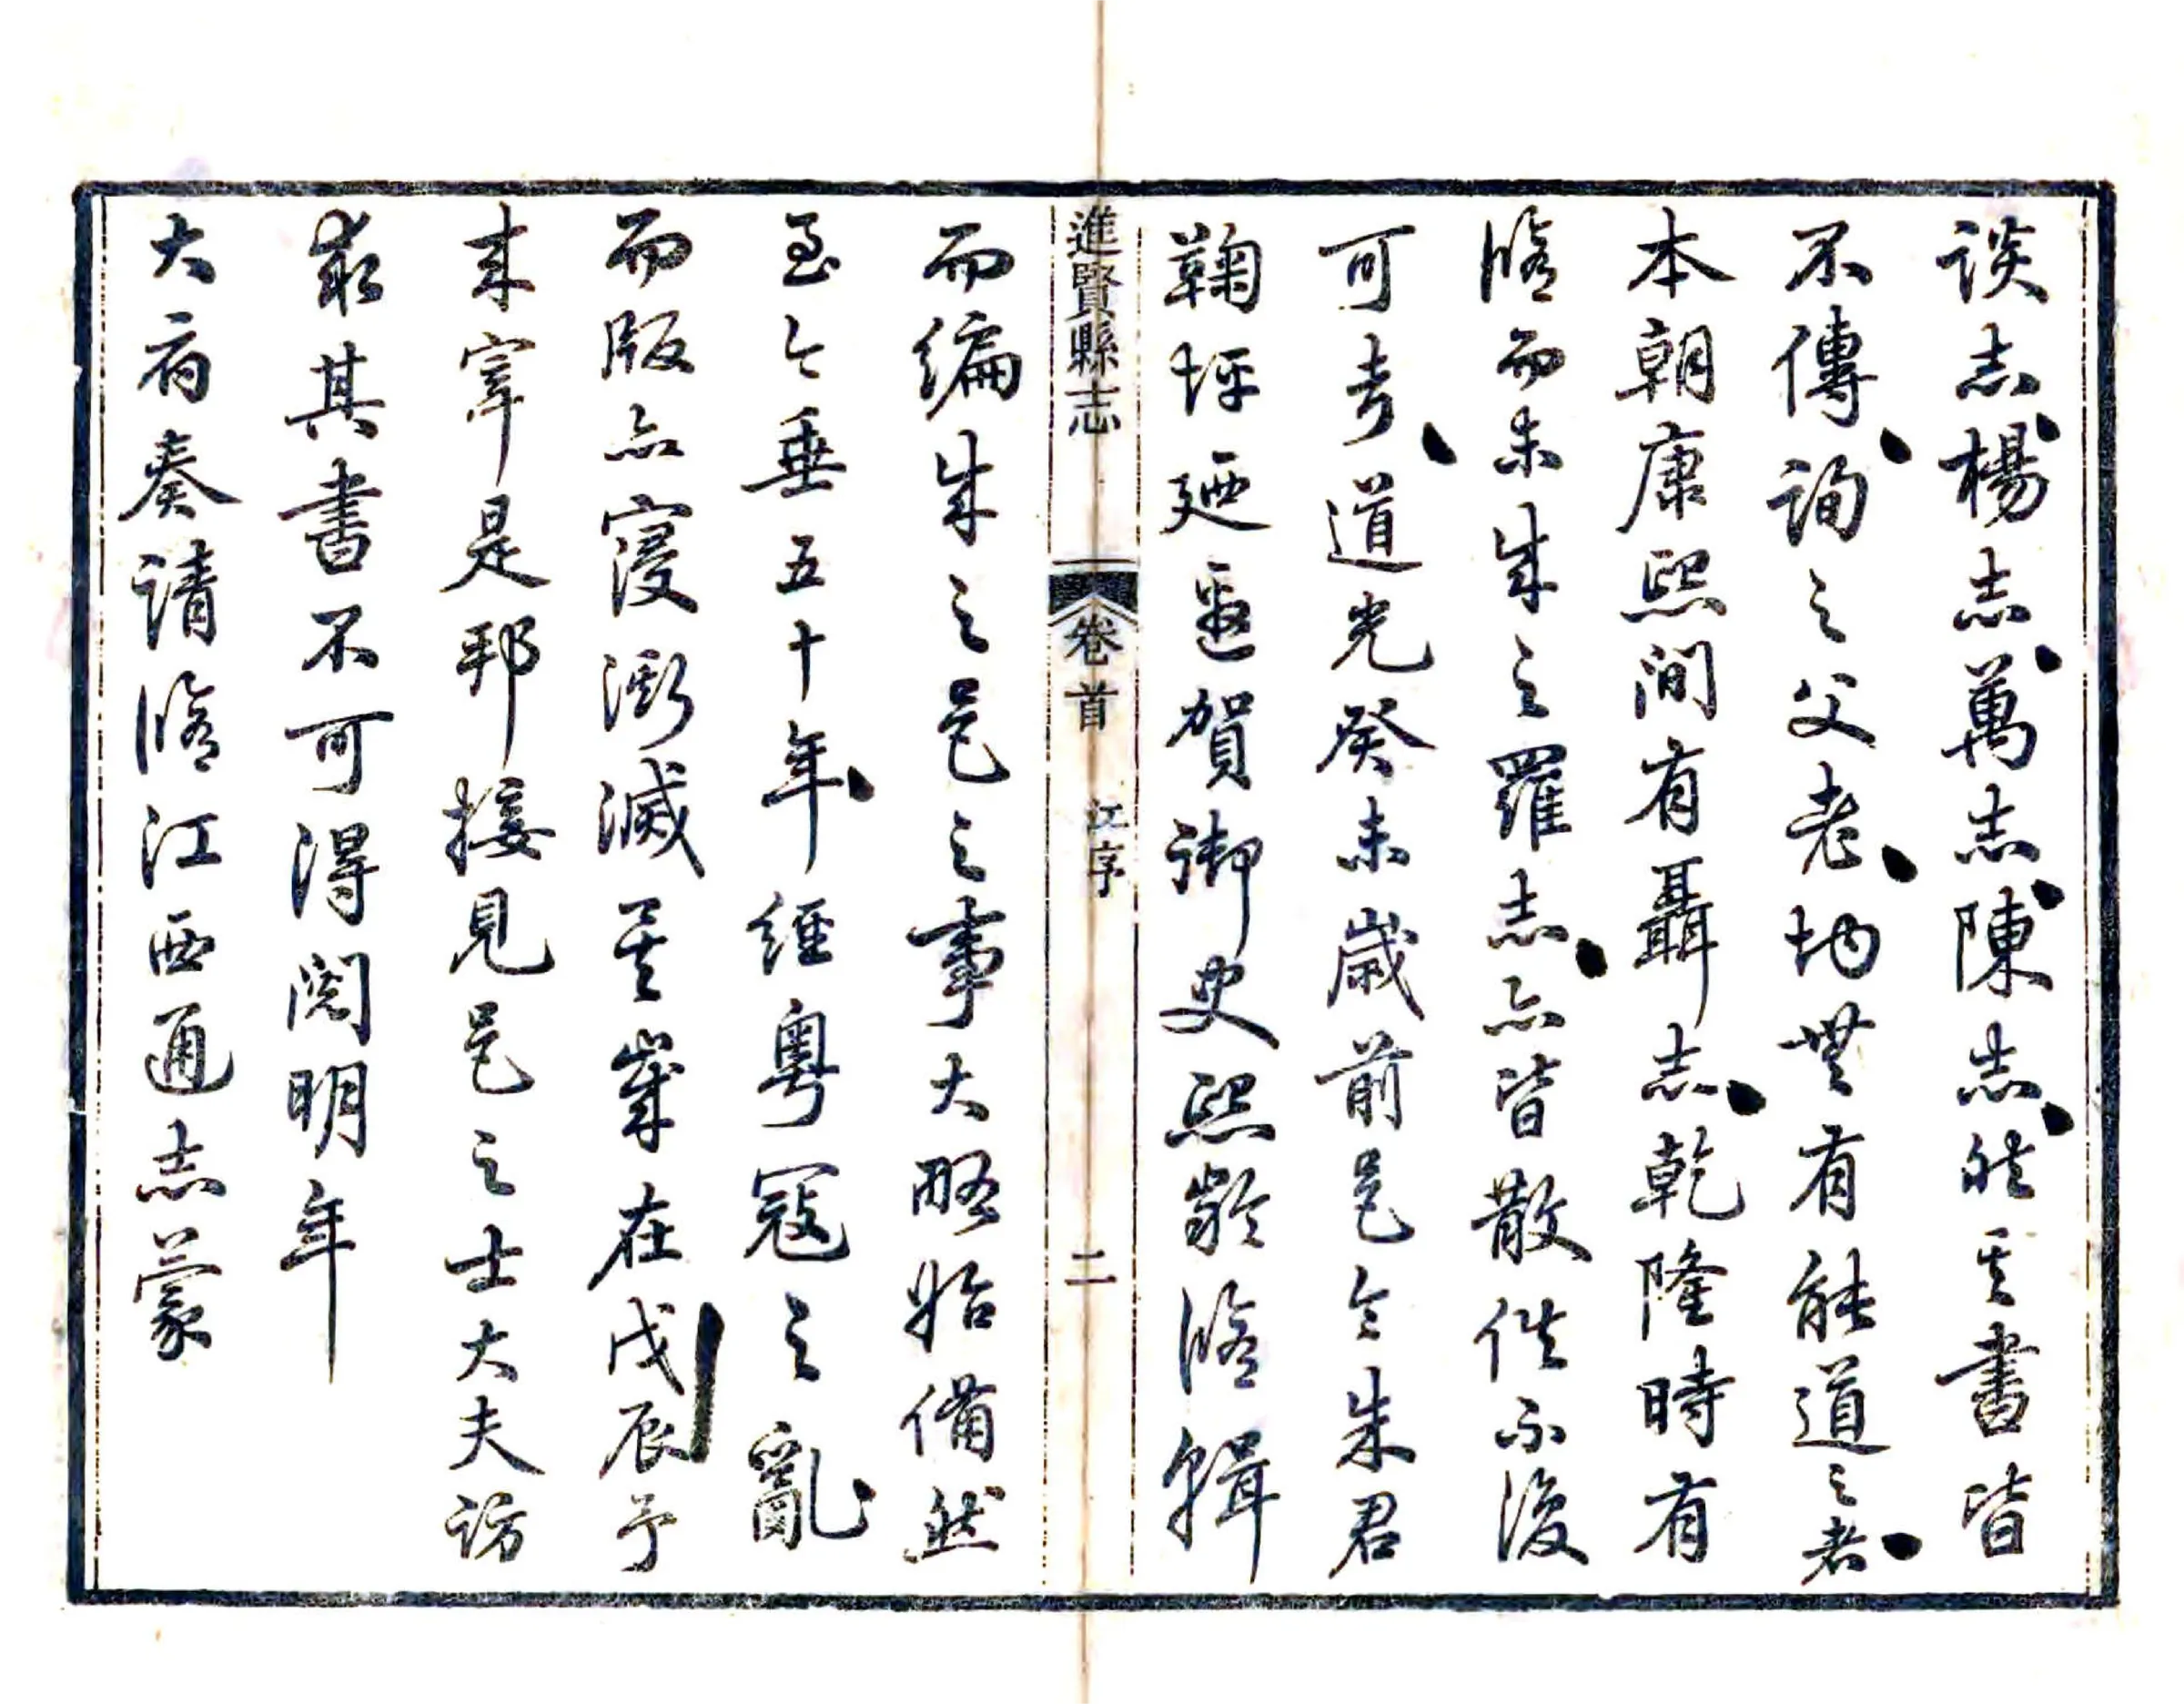 談志楊志萬志陳志然其書皆
不傳詢之父老均無有能道之者
本朝康熙間有聶志乾隆時有
脩而未成之羅志亦皆散佚不復
可考道光癸未歲前邑令朱君
鞠坪迺延賀御史熙齡脩輯
進賢縣志 卷首 江序 二
而編成之邑之事大略始備然
至今垂五十年經粵寇之亂
而版亦寖漸滅其歲在戊辰予
来宰是邦接見邑之士大夫訪
求其書不可得閱明年
大府奏請脩江西通志蒙